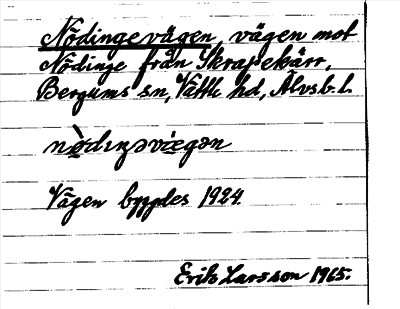 Nödingevägen, vägen mot
Nödinge från Skrapekärr,
Bergums sn, Vättle hd, Älvsb. l.
nø̀dıŋəvı̀ægən
Vägen byggdes 1924.
Erik Larsson 1965.